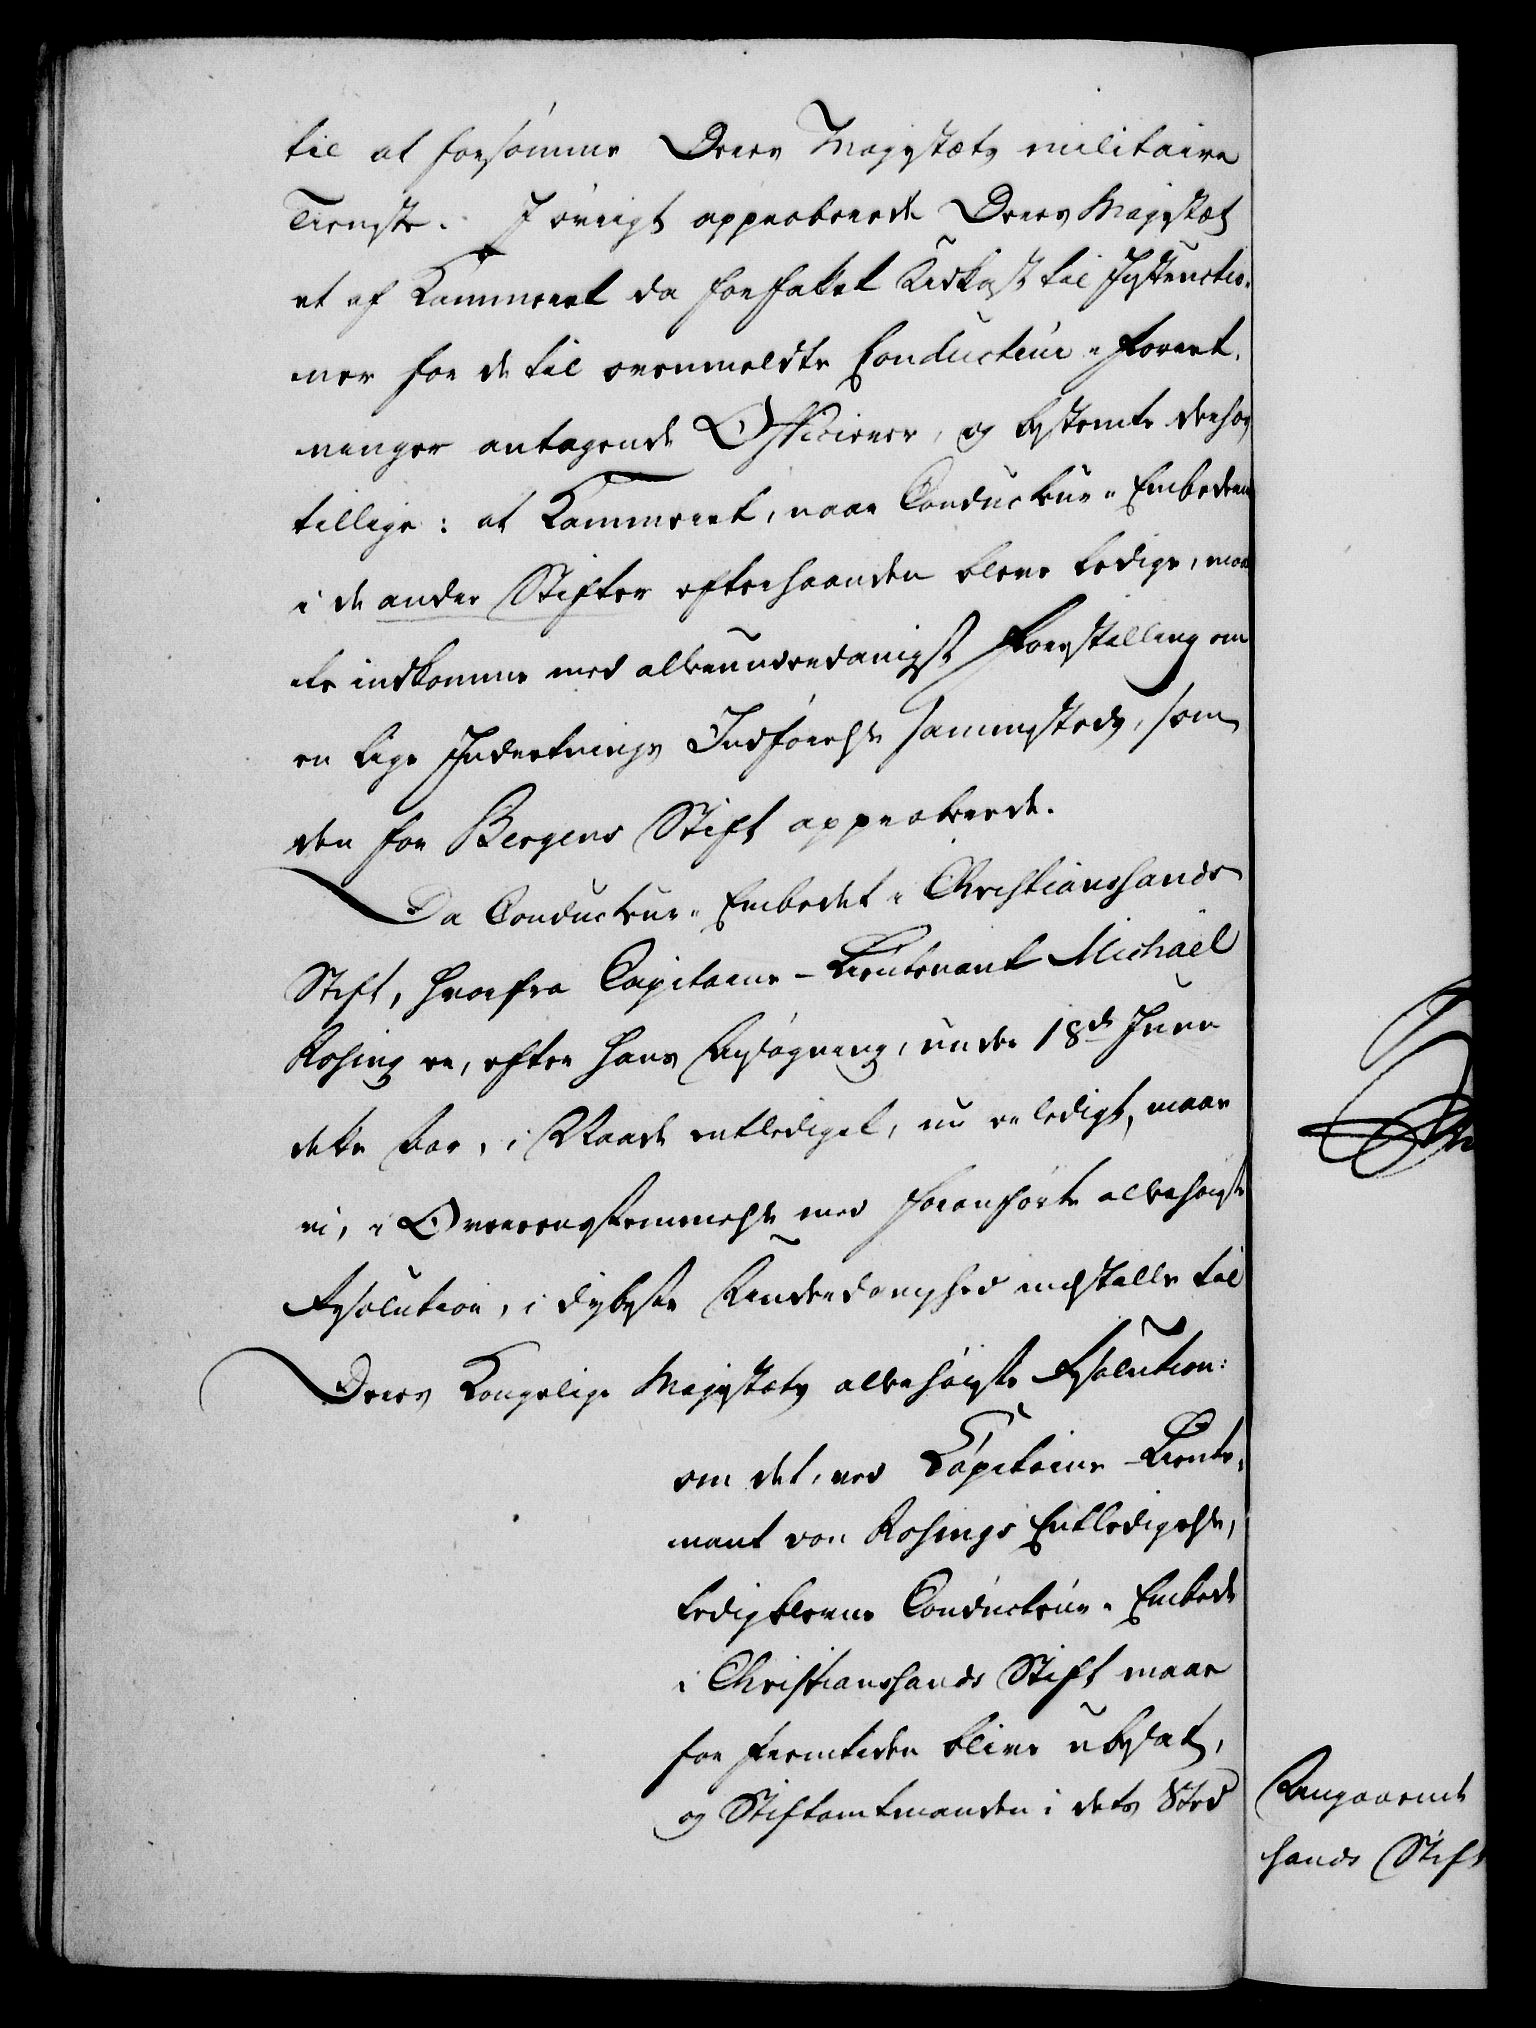 til at forsømme Deres Majestæts militaire
Tieneste. I øvrigt approberede Deres Majestæt
et af Kammeret da forfattet Udkast til Instructio-
ner for de til ovenmeldte Conducteur-Forret-
ninger antagende Officierer, og bestemte derhos
tillige: at Kammeret, naar Conducteur-Embederne
i de andre Stifter efterhaanden bleve ledige, maa-
tte indkomme med allerunderdanigst Forestilling om
en lige Indretnings Indførelse sammesteds, som
den for Bergens Stift approberede.
Da Conducteur-Embedet i Christianssands
Stift, hvorfra Capitaine-Lieutenant Michaël
Rosing er, efter hans Ansøgning, under 18de Junii
dette Aar, i Naade entlediget, nu er ledigt, maae
vi, i Overeensstemmelse med foranførte allerhøieste
Resolution, i dybeste Underdanighed indstille til
Deres Kongelige Majestæts allerhøieste Resolution:
om det, ved Capitaine-Lieute-
nant von Rosings Entledigelse,
ledigblevne Conducteur-Embede
i Christianssands Stift maae
for Fremtiden blive ubesat,
og Stiftamtmanden i dets Sted
Angaaende
sands Stift